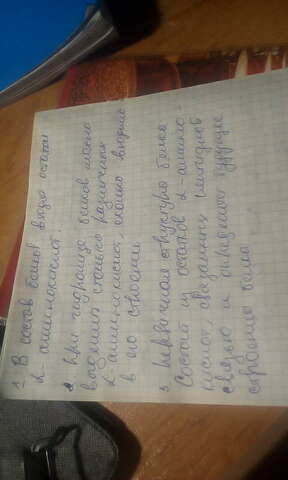 1. В состав белков входу остатки
α-аминокислот.
2 При гидролизе белков можно
выделить столько различных
α-аминокислот, сколько входило
в его строении
3. Первичная структура белка
Состоит из остатков α-амино-
кислот, связанных пептидной
связью и определяет будущее
строение белка